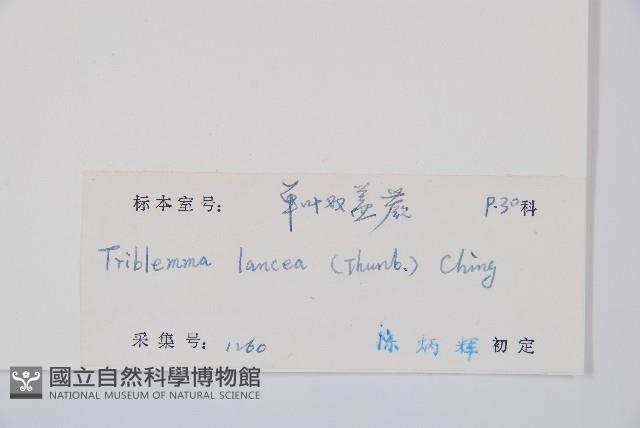 标本室号: 单叶双盖蕨 P.30科
Triblemma lancea (Thunb.) Ching
采集号: 1260 陈炳辉 初定
國立自然科學博物館
NATIONAL MUSEUM OF NATURAL SCIENCE